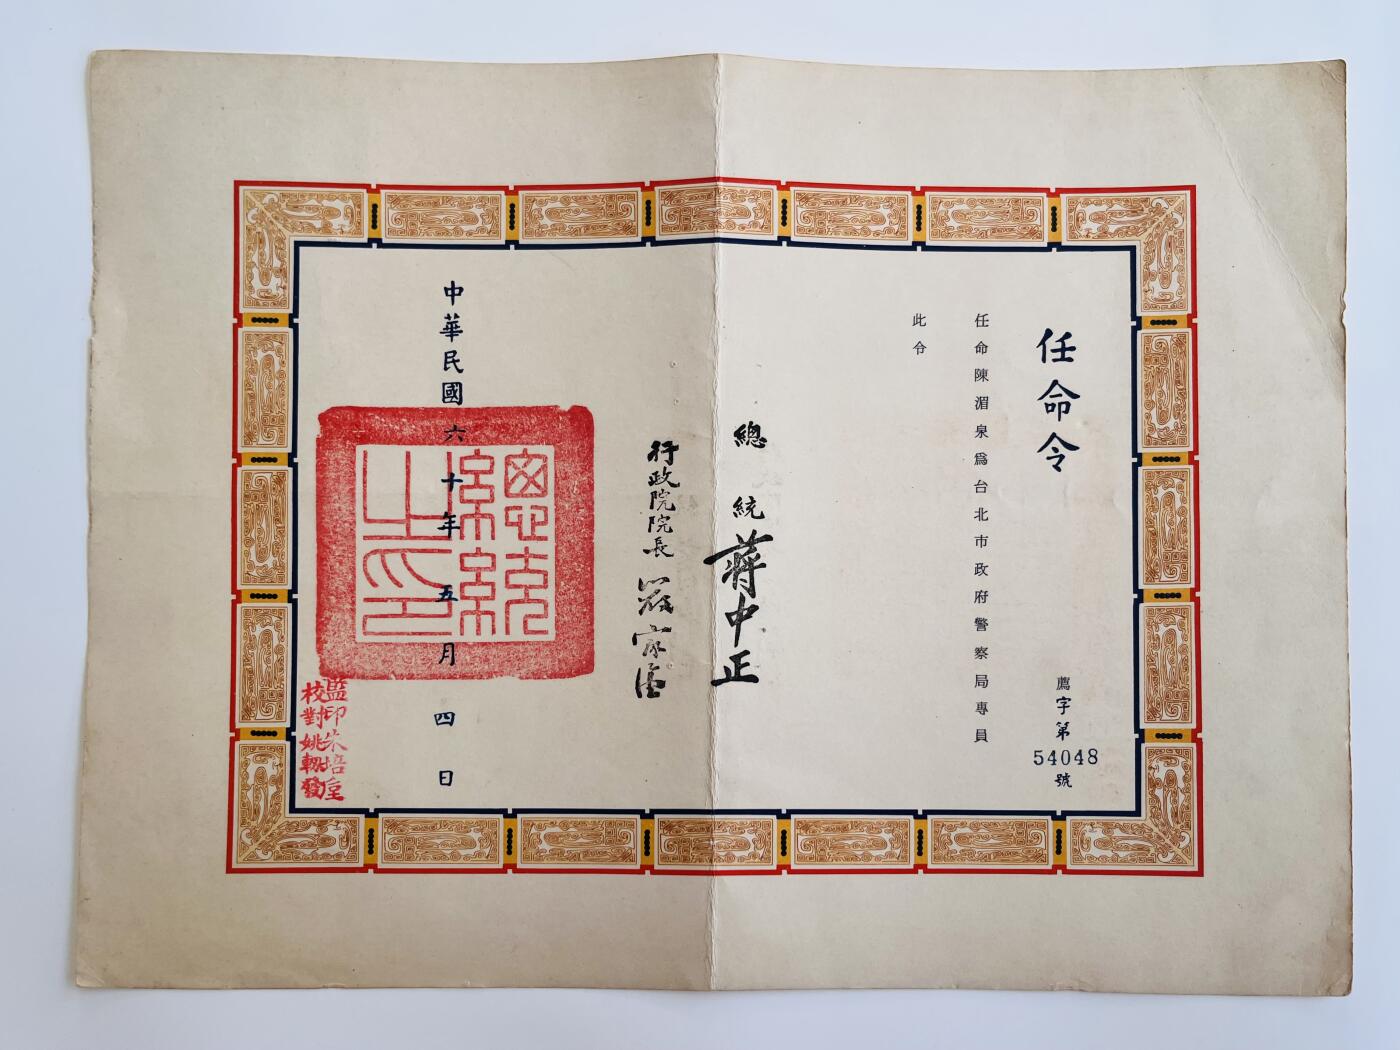 任命令
薦字第54048號
任命陳湄泉為台北市政府警察局專員
此令
總統蔣中正
行政院院長嚴家淦
中華民國六十年五月四日
總統之印
監印朱培垕
校對姚轂發